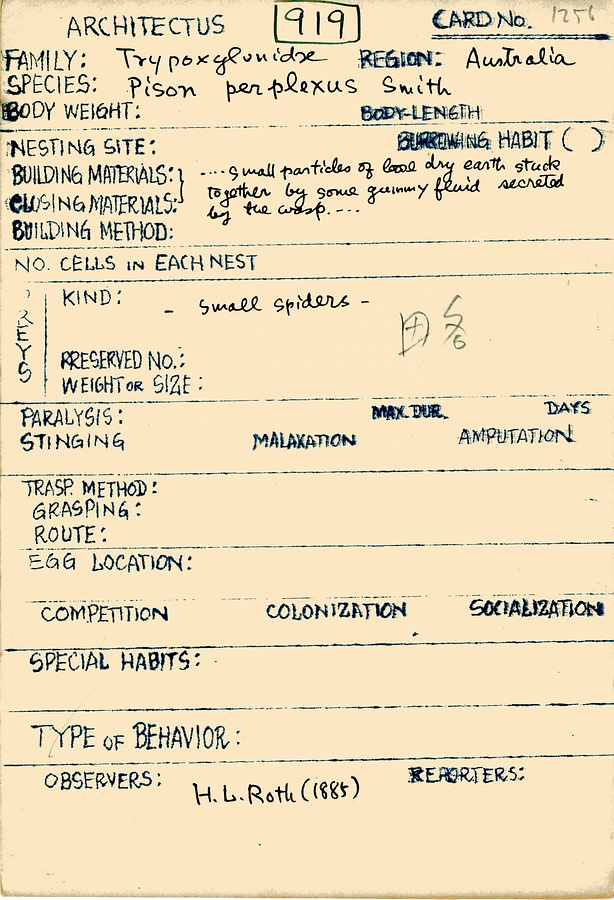 ARCHITECTUS 919 CARD No. 1256
FAMILY: Trypoxylonidæ REGION: Australia
SPECIES: Pison perplexus Smith
BODY WEIGHT: BODY-LENGTH
NESTING SITE: BURROWING HABIT ( )
BUILDING MATERIALS: ....small particles of loose dry earth stuck
CLOSING MATERIALS: together by some gummy fluid secreted
by the wasp.....
BUILDING METHOD:
NO. CELLS IN EACH NEST
PREYS
KIND: - small spiders -
PRESERVED NO.:
WEIGHT OR SIZE:
PARALYSIS: MAX. DUR. DAYS
STINGING MALAXATION AMPUTATION
TRASP. METHOD:
GRASPING:
ROUTE:
EGG LOCATION:
COMPETITION COLONIZATION SOCIALIZATION
SPECIAL HABITS:
TYPE OF BEHAVIOR:
OBSERVERS: H.L.Roth (1885) REPORTERS: